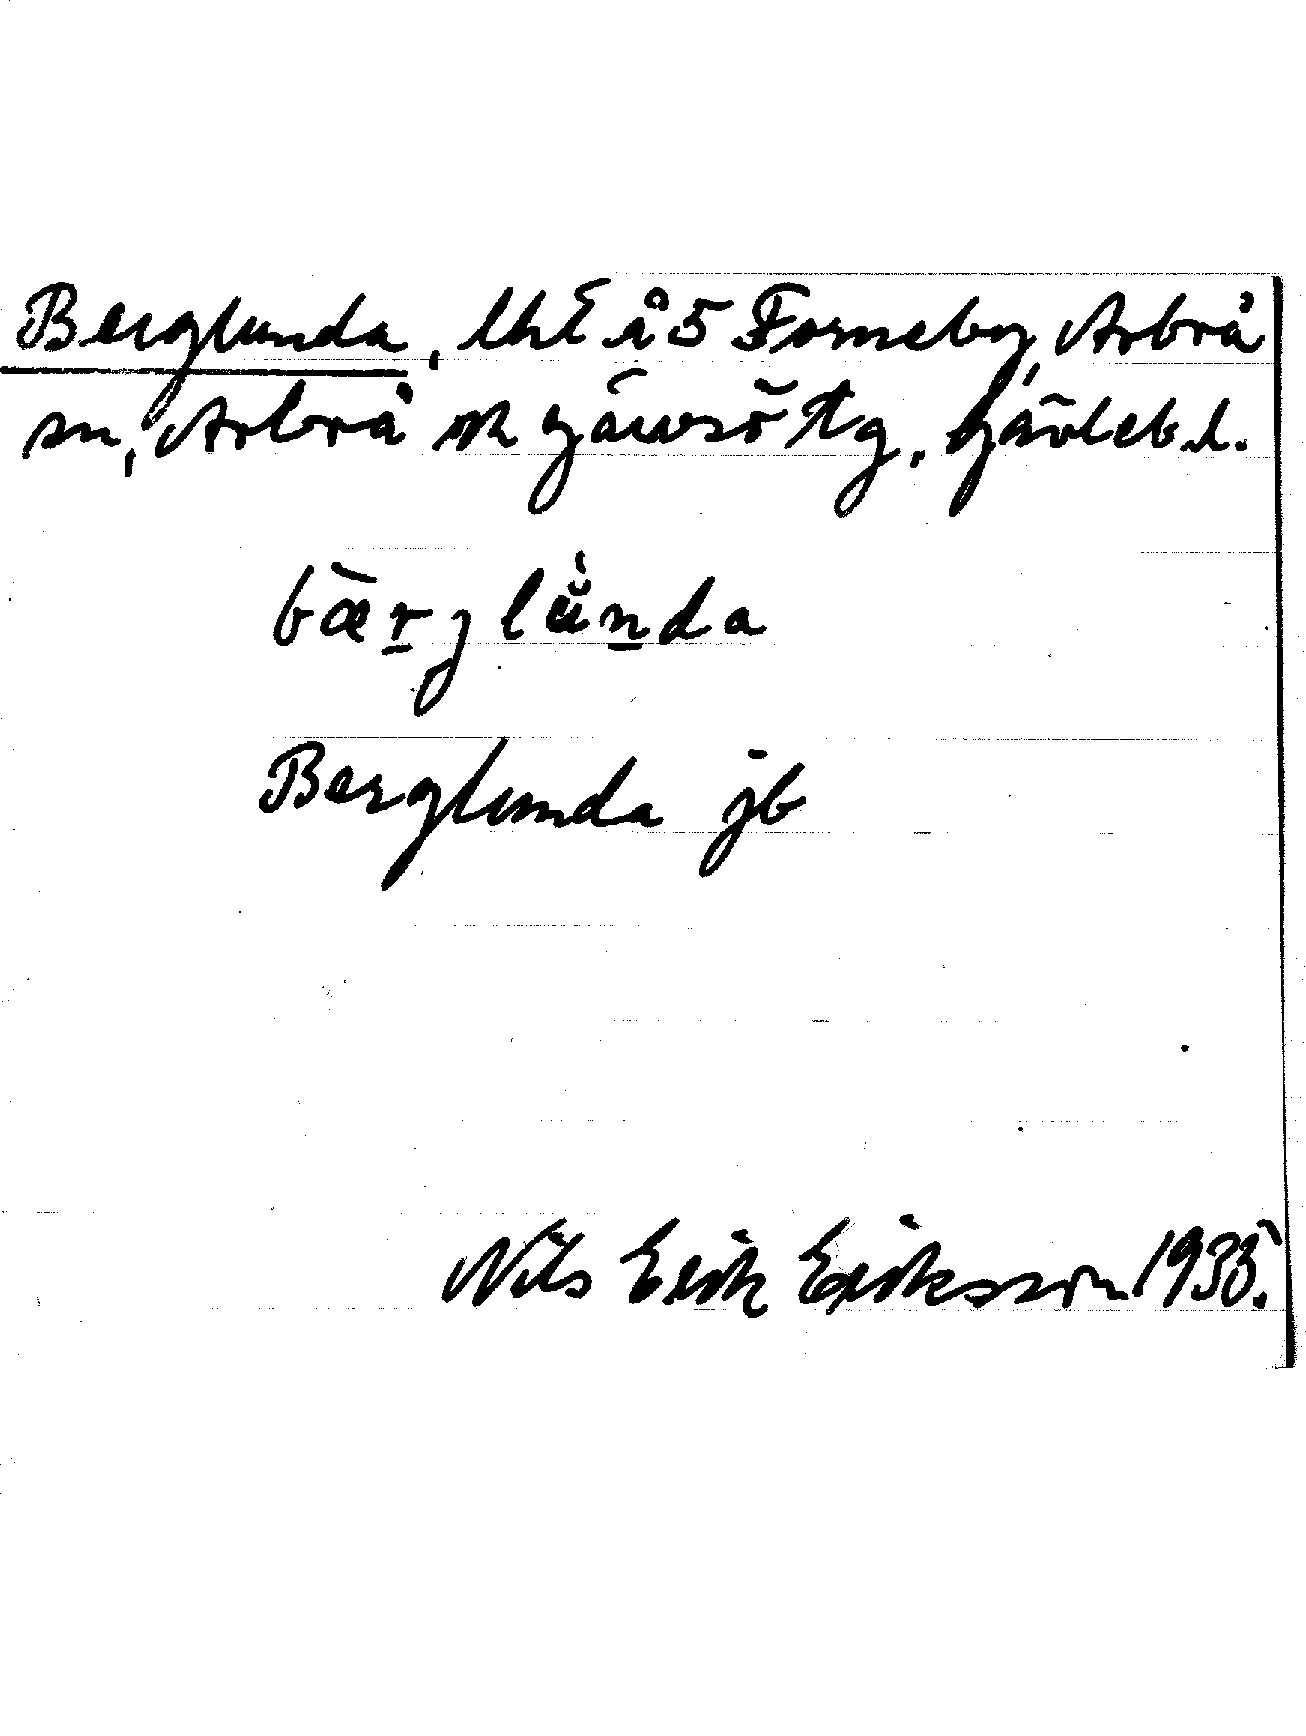 Berglunda, lht å 5 Forneby, Arbrå
sn, Arbrå ok Järvsö tg, Gävleb. l.
bæ̀rglùnda
Berglunda jb
Nils Erik Eriksson 1935.